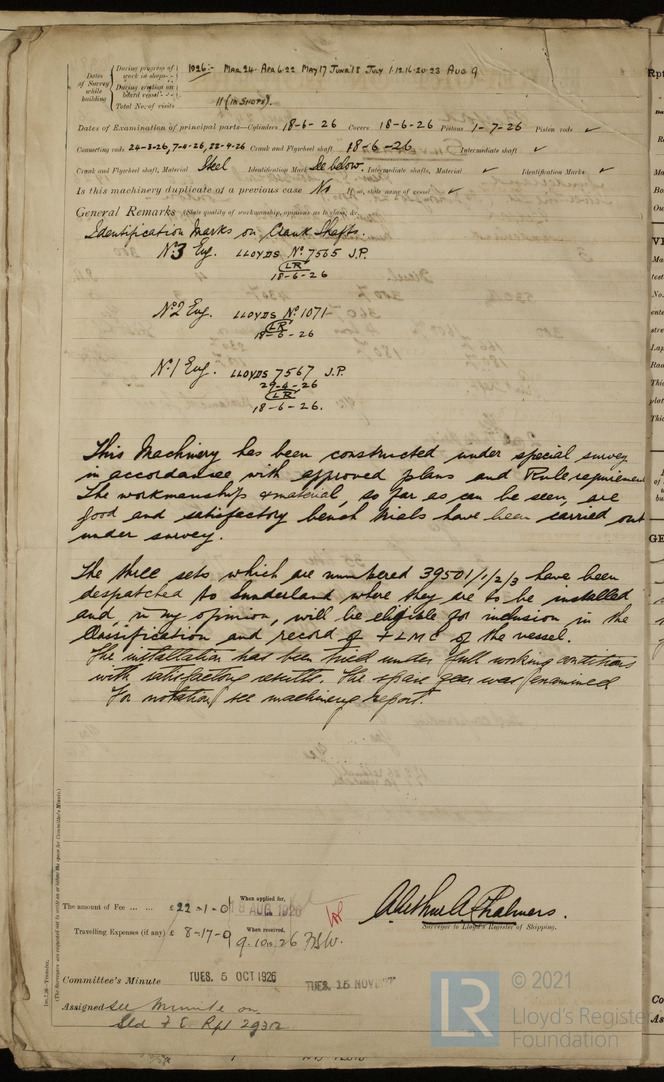 Dates of Survey while building
During progress of work in shops-- 1926:- Mar 24. Apr 6.22 May 17 June 18 July 1.12.16.20.23 Aug 9
During erection on board vessel---
Total No. of visits 11 (in shops).
Dates of Examination of principal parts—Cylinders 18-6-26 Covers 18-6-26 Pistons 1-7-26 Piston rods ✓
Connecting rods 24-3-26, 7-4-26, 22-4-26 Crank and Flywheel shaft 18-6-26 Intermediate shaft ✓
Crank and Flywheel shaft, Material Steel Identification Mark See below. Intermediate shafts, Material ✓ Identification Marks ✓
Is this machinery duplicate of a previous case No If so, state name of vessel ✓
General Remarks (State quality of workmanship, opinions as to class, &c.
Identification Marks on Crank Shafts.
No 3 Eng. LLOYDS No 7565 J.P.
LR
18-6-26
No 2 Eng. LLOYDS No 1071-
LR
18-6-26
No 1 Eng. LLOYDS 7567 J.P.
29-4-26
LR
18-6-26.
This Machinery has been constructed under special survey
in accordance with approved plans and Rule requirement
The workmanship & material, so far as can be seen, are
good and satisfactory bench trials have been carried out
under survey.
The three sets which are numbered 39501/1/2/3 have been
despatched to Sunderland where they are to be installed
and, in my opinion, will be eligible for inclusion in the
Classification and record of + LMC of the vessel.
The installation has been tried under full working conditions
with satisfactory results. The spare gear was examined
For notation see machinery report.
The amount of Fee ... ... £ 22-1-0 When applied for, AUG 1926
Travelling Expenses (if any) £ 8-17-0 When received, 9.10.26
Arthur A Chalmers.
Surveyor to Lloyd's Register of Shipping.
Committee's Minute TUES. 5 OCT 1926 TUES. 15 NOV
Assigned see minute on
Sld F.E. Rpt 29312
(The Surveyors are requested not to write on or below the space for Committee's Minute.)
© 2021
Lloyd's Register
Foundation